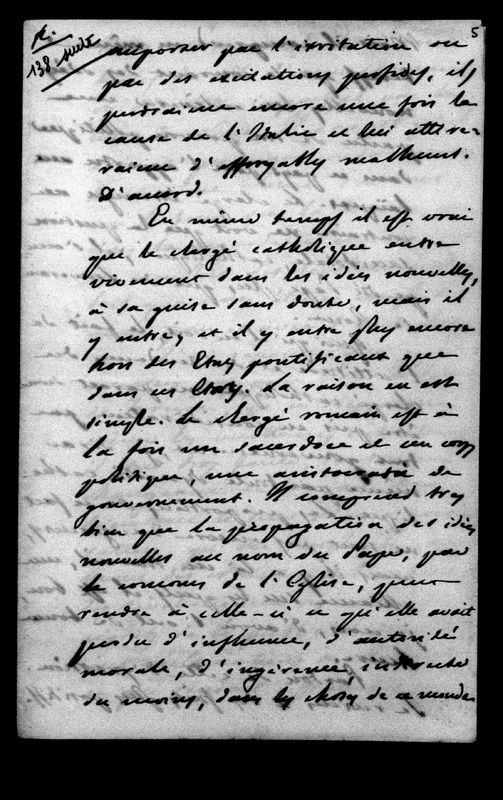 R.
138 suite
5
emporter par l'irritation ou
par des excitations perfides, ils
perdraient encore une fois la
cause de l'Italie et lui attire-
raient d'effroyables malheurs.
D'accord.
En même temps il est vrai
que le clergé catholique entre
vivement dans les idées nouvelles,
à sa guise sans doute, mais il
y entre, et il y entre plus encore
hors des Etats pontificaux que
dans ces Etats. La raison en est
simple. Le clergé romain est à
la fois un sacerdoce et un corps
politique, une aristocratie de
gouvernement. Il comprend très
bien que la propagation des idées
nouvelles au nom du Pape, par
le concours de l'Eglise, peut
rendre à celle-ci ce qu'elle avait
perdu d'influence, d'autorité
morale, d'ingérence, indirecte
du moins, dans les choses de ce monde